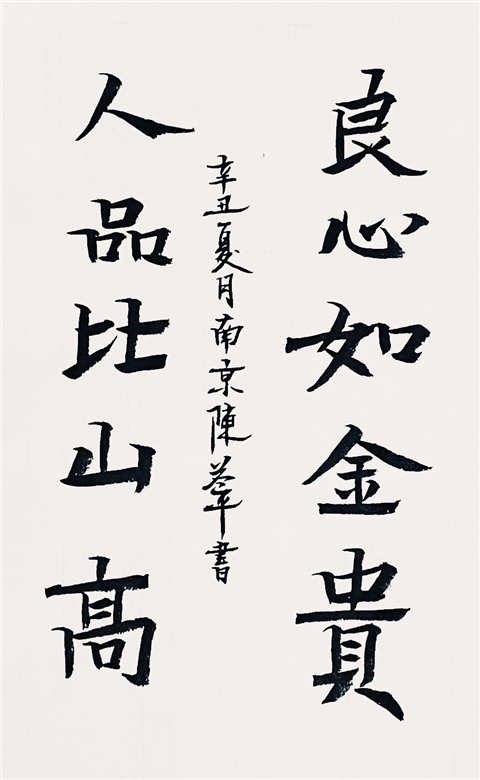 良心如金貴
人品比山髙
辛丑夏月南京陳書